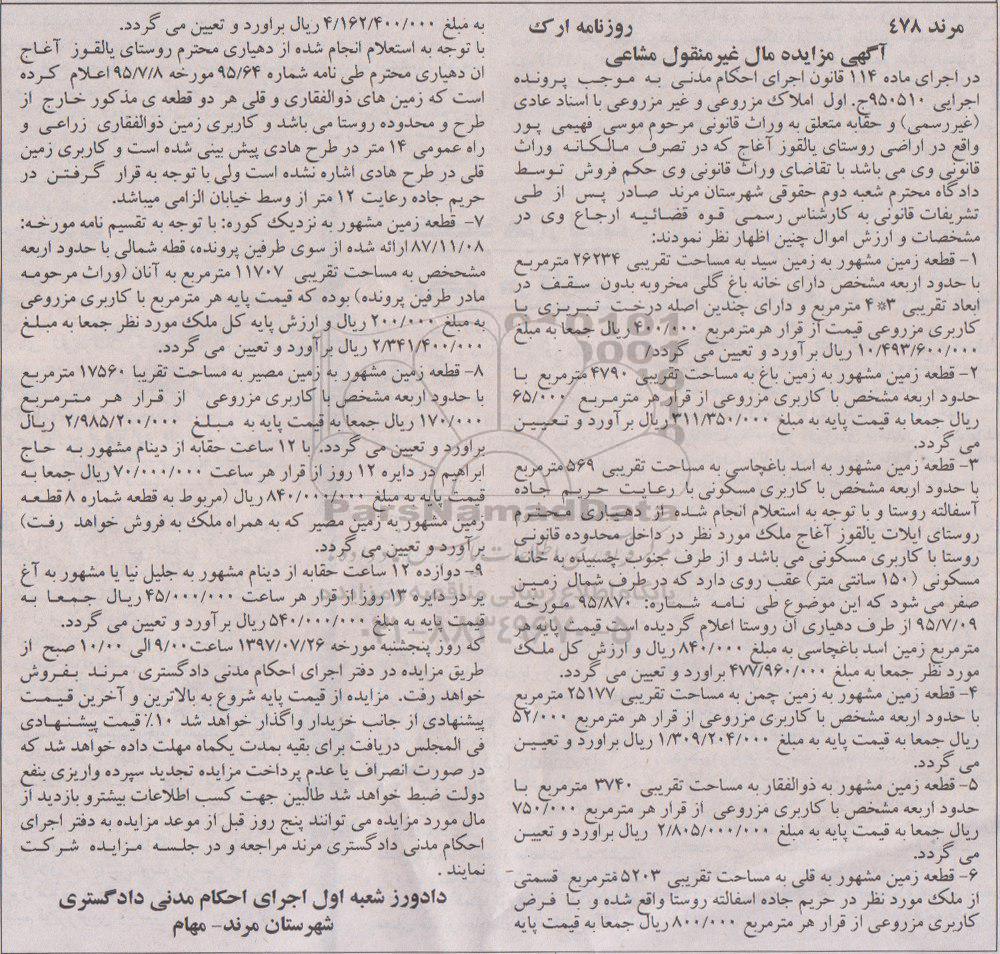 مرند ۴۷۸
روزنامه ارک
آگهی مزایده مال غیرمنقول مشاعی
در اجرای ماده ۱۱۴ قانون اجرای احکام مدنی به موجب پرونده
اجرایی ۹۵۰۵۱۰ج. اول املاک مزروعی و غیر مزروعی با اسناد عادی
(غیررسمی) و حقابه متعلق به وراث قانونی مرحوم موسی فهیمی پور
واقع در اراضی روستای یالقوز آغاج که در تصرف مالکانه وراث
قانونی وی می باشد با تقاضای وراث قانونی وی حکم فروش توسط
دادگاه محترم شعبه دوم حقوقی شهرستان مرند صادر پس از طی
تشریفات قانونی به کارشناس رسمی قوه قضائیه ارجاع وی در
مشخصات و ارزش اموال چنین اظهار نظر نمودند:
۱- قطعه زمین مشهور به زمین سید به مساحت تقریبی ۲۶۲۳۴ مترمربع
با حدود اربعه مشخص دارای خانه باغ گلی مخروبه بدون سقف در
ابعاد تقریبی ۳*۴ مترمربع و دارای چندین اصله درخت تبریزی با
کاربری مزروعی قیمت از قرار هرمترمربع ۴۰۰/۰۰۰ ریال جمعا به مبلغ
۱۰/۴۹۳/۶۰۰/۰۰۰ ریال برآورد و تعیین می گردد/
۲- قطعه زمین مشهور به زمین باغ به مساحت تقریبی ۴۷۹۰ مترمربع با
حدود اربعه مشخص با کاربری مزروعی از قرار هر مترمربع ۶۵/۰۰۰
ریال جمعا به قیمت پایه به مبلغ ۳۱۱/۳۵۰/۰۰۰ ریال برآورد و تعیین
می گردد.
۳- قطعه زمین مشهور به اسد باغچاسی به مساحت تقریبی ۵۶۹ مترمربع
با حدود اربعه مشخص با کاربری مسکونی با رعایت حریم جاده
آسفالته روستا و با توجه به استعلام انجام شده از دهیاری محترم
روستای ایلات یالقوز آغاج ملک مورد نظر در داخل محدوده قانونی
روستا با کاربری مسکونی می باشد و از طرف جنوب چسبیده به خانه
مسکونی (۱۵۰ سانتی متر) عقب روی دارد که در طرف شمال زمین
صفر می شود که این موضوع طی نامه شماره: ۹۵/۸۷۰ مورخه
۹۵/۷/۰۹ از طرف دهیاری آن روستا اعلام گردیده است قیمت پایه هر
مترمربع زمین اسد باغچاسی به مبلغ ۸۴۰/۰۰۰ ریال و ارزش کل ملک
مورد نظر جمعا به مبلغ ۴۷۷/۹۶۰/۰۰۰ براورد و تعیین می گردد.
۴- قطعه زمین مشهور به زمین چمن به مساحت تقریبی ۲۵۱۷۷ مترمربع
با حدود اربعه مشخص با کاربری مزروعی از قرار هر مترمربع ۵۲/۰۰۰
ریال جمعا به قیمت پایه به مبلغ ۱/۳۰۹/۲۰۴/۰۰۰ ریال براورد و تعیین
می گردد.
۵- قطعه زمین مشهور به ذوالفقار به مساحت تقریبی ۳۷۴۰ مترمربع با
حدود اربعه مشخص با کاربری مزروعی از قرار هر مترمربع ۷۵۰/۰۰۰
ریال جمعا به قیمت پایه به مبلغ ۲/۸۰۵/۰۰۰/۰۰۰ ریال براورد و تعیین
می گردد.
۶- قطعه زمین مشهور به قلی به مساحت تقریبی ۵۲۰۳ مترمربع قسمتی
از ملک مورد نظر در حریم جاده اسفالته روستا واقع شده و با فرض
کاربری مزروعی از قرار هر مترمربع ۸۰۰/۰۰۰ ریال جمعا به قیمت پایه
به مبلغ ۴/۱۶۲/۴۰۰/۰۰۰ ریال براورد و تعیین می گردد.
با توجه به استعلام انجام شده از دهیاری محترم روستای یالقوز آغاج
ان دهیاری محترم طی نامه شماره ۹۵/۶۴ مورخه ۹۵/۷/۸ اعلام کرده
است که زمین های ذوالفقاری و قلی هر دو قطعه ی مذکور خارج از
طرح و محدوده روستا می باشد و کاربری زمین ذوالفقاری زراعی و
راه عمومی ۱۴ متر در طرح هادی پیش بینی شده است و کاربری زمین
قلی در طرح هادی اشاره نشده است ولی با توجه به قرار گرفتن در
حریم جاده رعایت ۱۲ متر از وسط خیابان الزامی میباشد.
۷- قطعه زمین مشهور به نزدیک کوره: با توجه به تقسیم نامه مورخه:
۸۷/۱۱/۰۸ ارائه شده از سوی طرفین پرونده، قطه شمالی با حدود اربعه
مشحخص به مساحت تقریبی ۱۱۷۰۷ مترمربع به آنان (وراث مرحومه
مادر طرفین پرونده) بوده که قیمت پایه هر مترمربع با کاربری مزروعی
به مبلغ ۲۰۰/۰۰۰ ریال و ارزش پایه کل ملک مورد نظر جمعا به مبلغ
۲/۳۴۱/۴۰۰/۰۰۰ ریال برآورد و تعیین می گردد.
۸- قطعه زمین مشهور به زمین مصیر به مساحت تقریبا ۱۷۵۶۰ مترمربع
با حدود اربعه مشخص با کاربری مزروعی از قرار هر مترمربع
۱۷۰/۰۰۰ ریال جمعا به قیمت پایه به مبلغ ۲/۹۸۵/۲۰۰/۰۰۰ ریال
براورد و تعیین می گردد. با ۱۲ ساعت حقابه از دینام مشهور به حاج
ابراهیم در دایره ۱۲ روز از قرار هر ساعت ۷۰/۰۰۰/۰۰۰ ریال جمعا به
قیمت پایه به مبلغ ۸۴۰/۰۰۰/۰۰۰ ریال (مربوط به قطعه شماره ۸ قطعه
زمین مشهور به زمین مصیر که به همراه ملک به فروش خواهد رفت)
برآورد و تعیین می گردد.
۹- دوازده ۱۲ ساعت حقابه از دینام مشهور به جلیل نیا یا مشهور به آغ
یر در دایره ۱۳ روز از قرار هر ساعت ۴۵/۰۰۰/۰۰۰ ریال جمعا به
قیمت پایه به مبلغ ۵۴۰/۰۰۰/۰۰۰ ریال برآورد و تعیین می گردد.
که روز پنجشنبه مورخه ۱۳۹۷/۰۷/۲۶ ساعت ۹/۰۰ الی ۱۰/۰۰ صبح از
طریق مزایده در دفتر اجرای احکام مدنی دادگستری مرند بفروش
خواهد رفت. مزایده از قیمت پایه شروع به بالاترین و آخرین قیمت
پیشنهادی از جانب خریدار واگذار خواهد شد ۱۰٪ قیمت پیشنهادی
فی المجلس دریافت برای بقیه بمدت یکماه مهلت داده خواهد شد که
در صورت انصراف یا عدم پرداخت مزایده تجدید سپرده واریزی بنفع
دولت ضبط خواهد شد طالبین جهت کسب اطلاعات بیشترو بازدید از
مال مورد مزایده می توانند پنج روز قبل از موعد مزایده به دفتر اجرای
احکام مدنی دادگستری مرند مراجعه و در جلسه مزایده شرکت
نمایند .
دادورز شعبه اول اجرای احکام مدنی دادگستری
شهرستان مرند- مهام
ParsNamadData
پایگاه اطلاع رسانی مناقصه و مزایده
۰۲۱-۸۸۳۴۹۶۷۰-۵